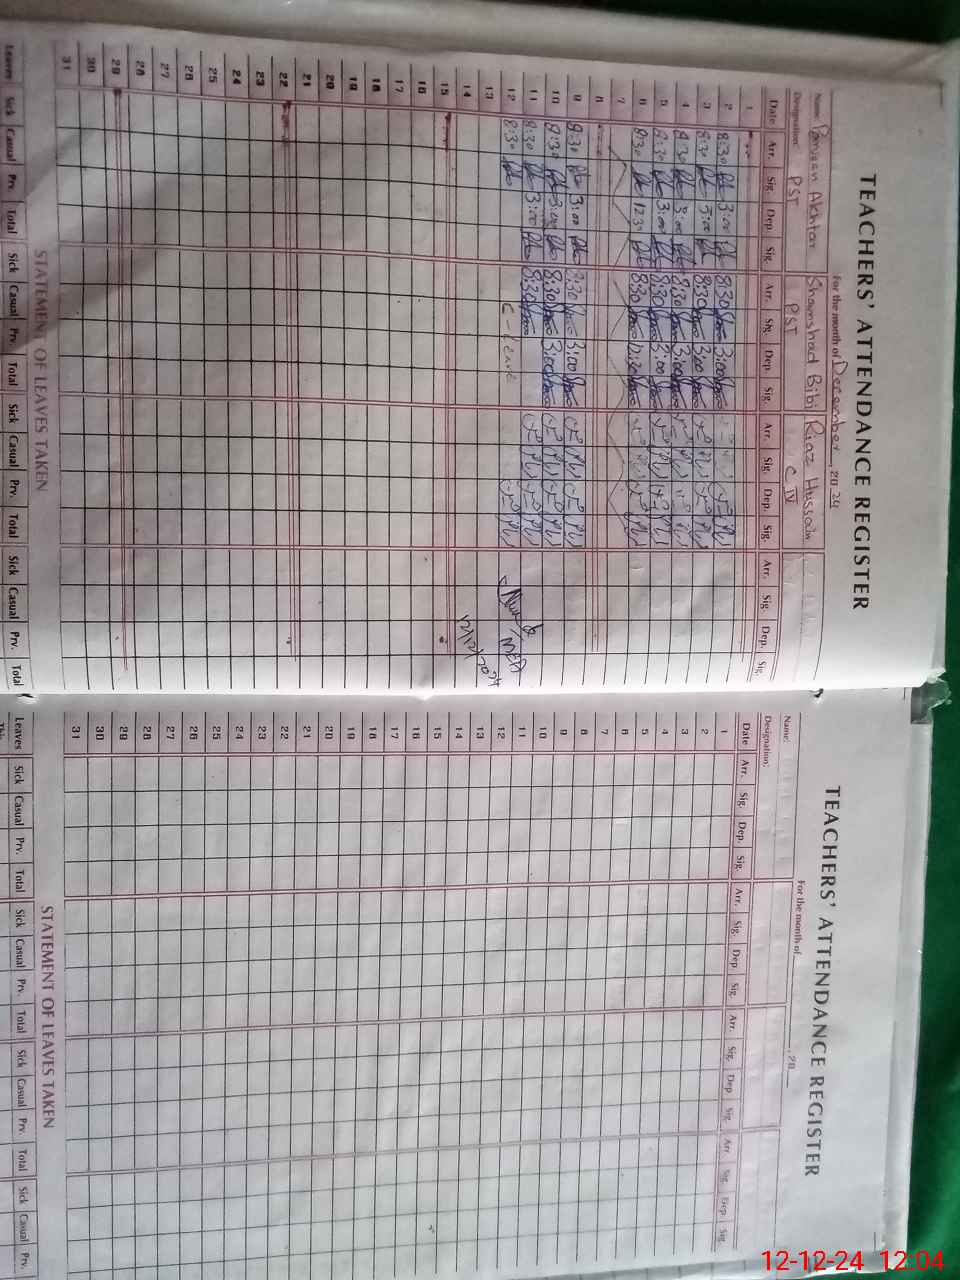 TEACHERS' ATTENDANCE REGISTER
For the month of December, 2024
Name: Parveen Akhtar Shamshad Bibi Riaz Hussain
Designation: PST PST C IV
Date Arr. Sig. Dep. Sig. Arr. Sig. Dep. Sig. Arr. Sig. Dep. Sig. Arr. Sig. Dep. Sig.
1
2 8:30 3:00 8:30 3:00
3 8:30 3:00 8:30 3:00
4 8:30 3:00 8:30 3:00
5 8:30 3:00 8:30 3:00
6 8:30 12:30 8:30 12:30
7
8
9 8:30 3:00 8:30 3:00
10 8:30 3:00 8:30 3:00
11 8:30 3:00 8:30
12 8:30 C-leave
13
14 12/12/2024
15
16
17
18
19
20
21
22
23
24
25
26
27
28
29
30
31
Leaves Sick Casual Prv. Total Sick Casual Prv. Total Sick Casual Prv. Total Sick Casual Prv. Total
STATEMENT OF LEAVES TAKEN
TEACHERS' ATTENDANCE REGISTER
For the month of , 20
Name:
Designation:
Date Arr. Sig. Dep. Sig. Arr. Sig. Dep. Sig. Arr. Sig. Dep. Sig. Arr. Sig. Dep. Sig.
1
2
3
4
5
6
7
8
9
10
11
12
13
14
15
16
17
18
19
20
21
22
23
24
25
26
27
28
29
30
31
STATEMENT OF LEAVES TAKEN
Leaves Sick Casual Prv. Total Sick Casual Prv. Total Sick Casual Prv. Total Sick Casual Prv.
12-12-24 12:04